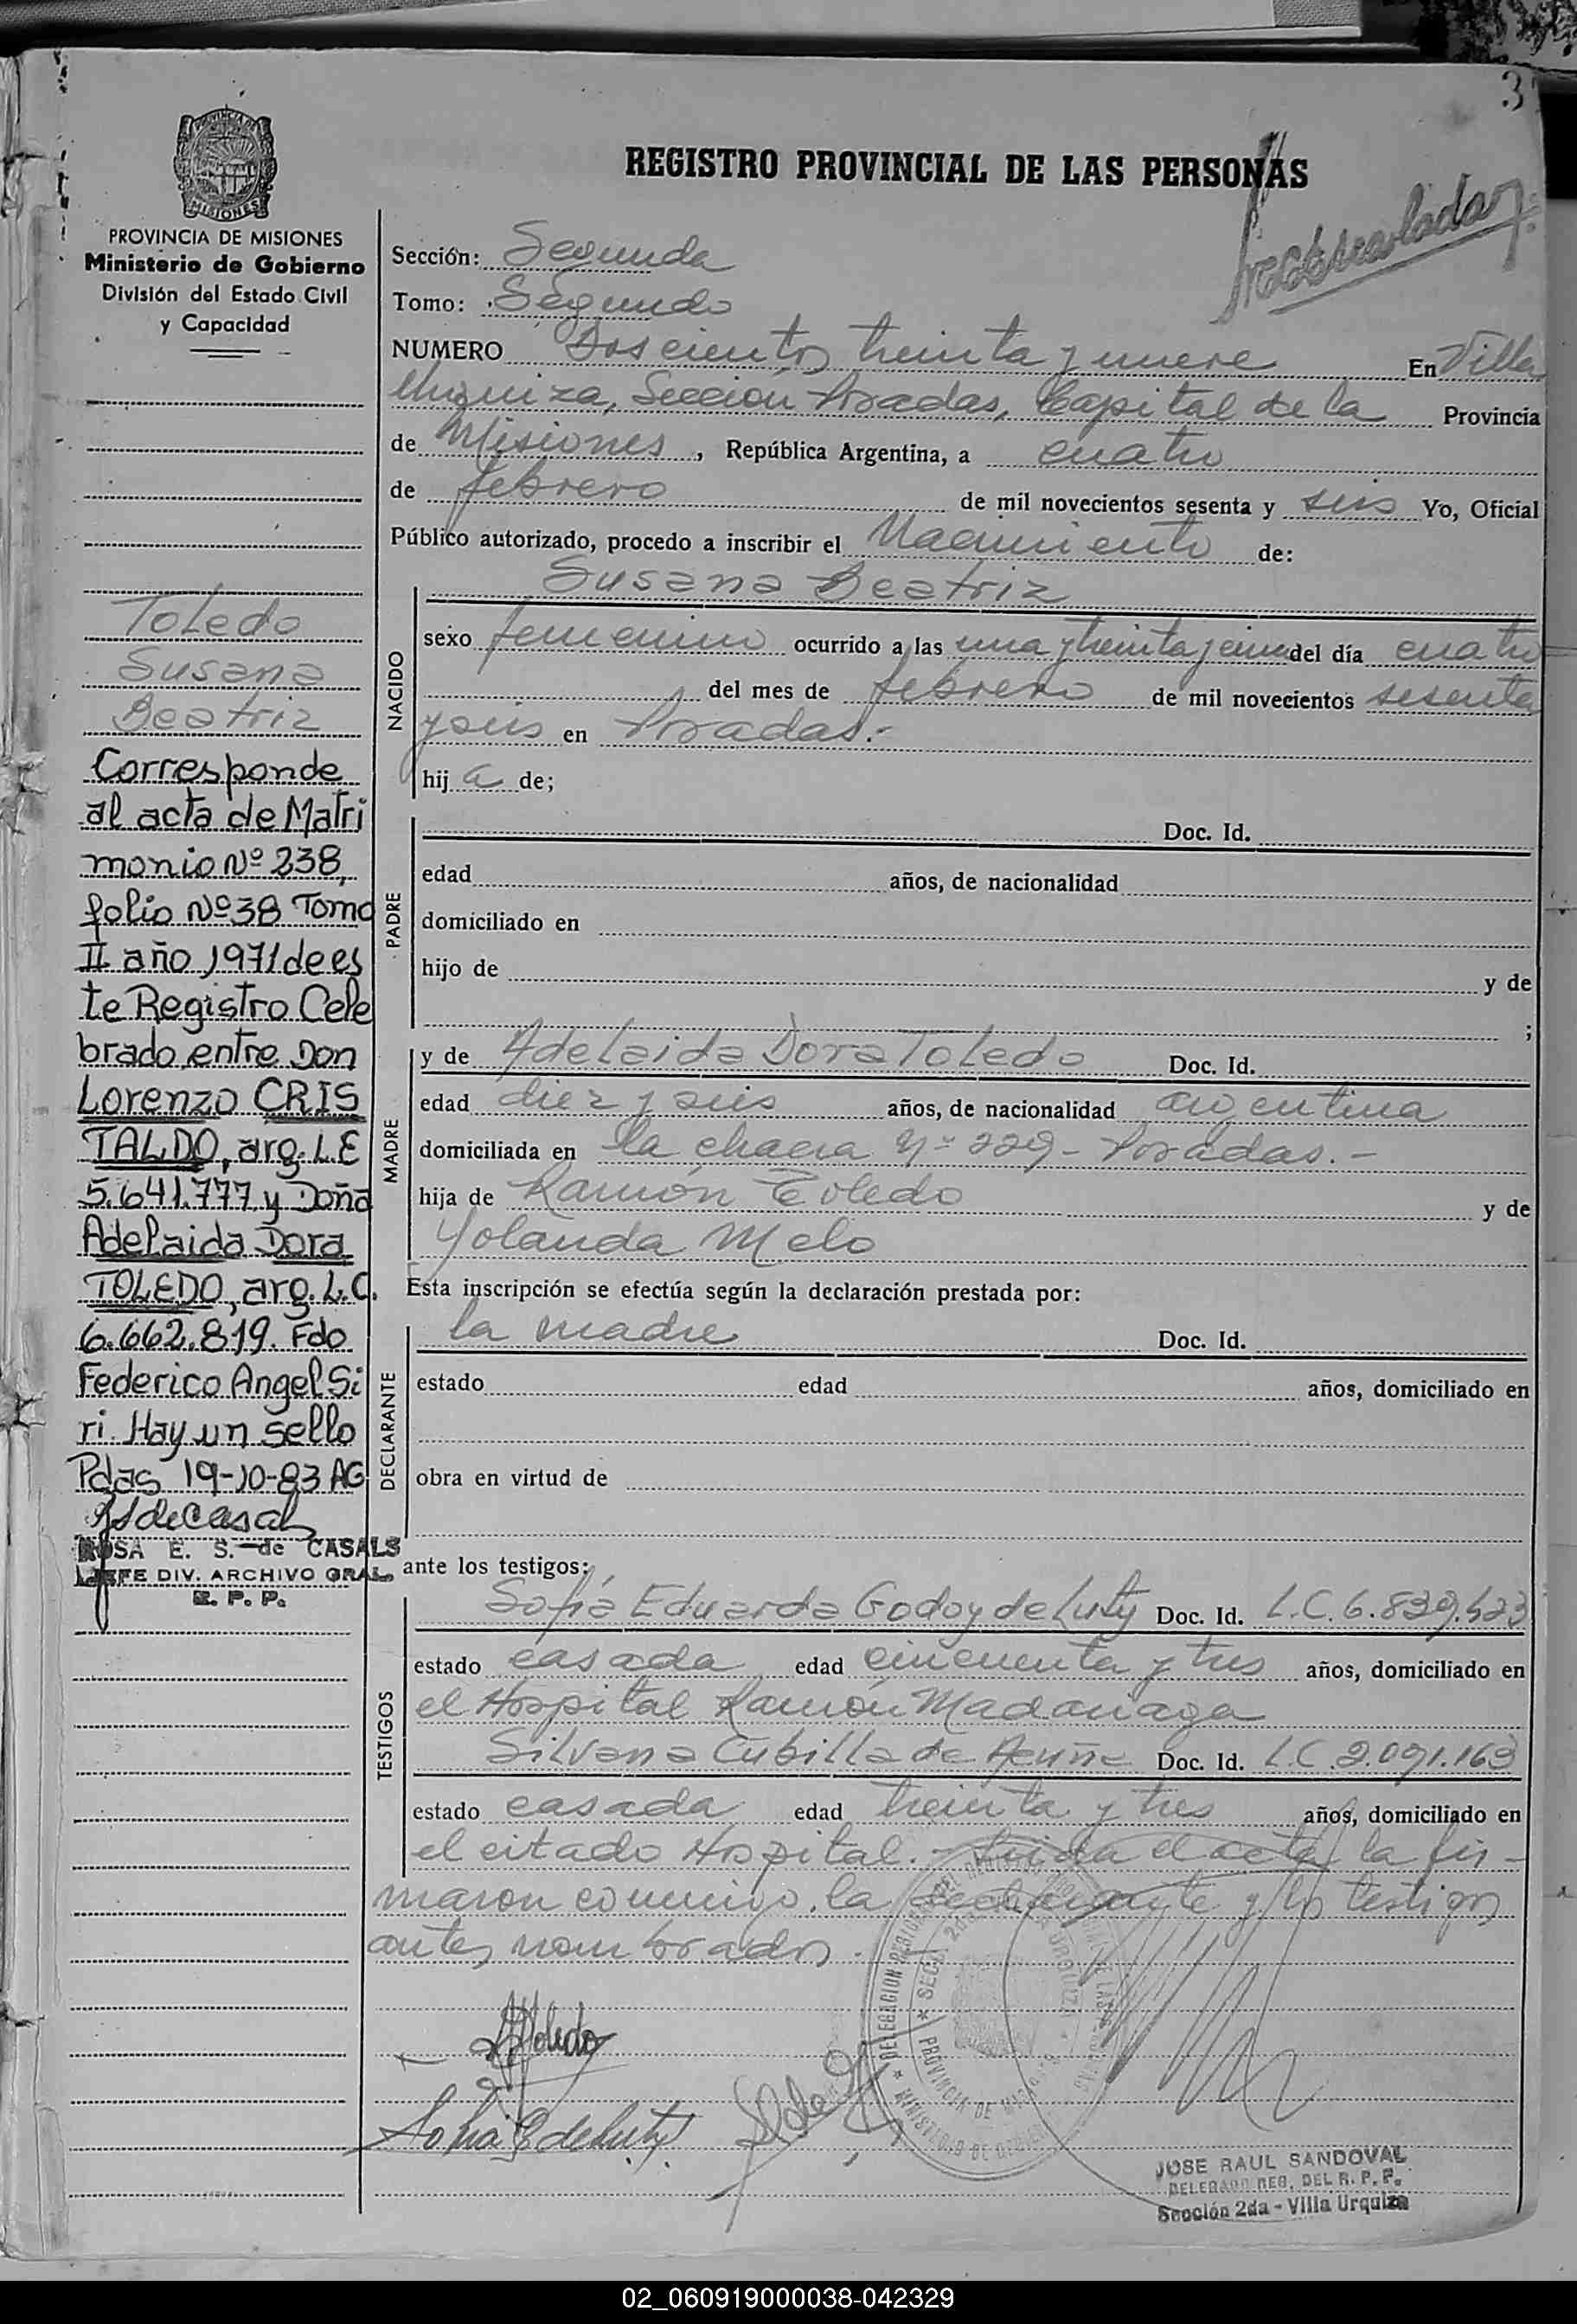 3
REGISTRO PROVINCIAL DE LAS PERSONAS
PROVINCIA DE MISIONES
Ministerio de Gobierno
División del Estado Civil
y Capacidad
Toledo
Susana
Beatriz
Corresponde
al acta de Matri
monio Nº 238,
folio Nº 38 Tomo
II año 1971 de es
te Registro Cele
brado entre Don
Lorenzo CRIS
TALDO, arg. L.E
5.641.777 y Doña
Adelaida Dora
TOLEDO, arg. L.C.
6.662.819. Fdo
Federico Angel Si
ri. Hay un sello
Pdas 19-10-83 AG
ROSA E. S. de CASALS
JEFE DIV. ARCHIVO GRAL.
R. P. P.
Sección: Segunda
Tomo: Segundo
NUMERO Doscientos treinta y nueve En Villa
Urquiza, Sección Posadas, Capital de la Provincia
de Misiones, República Argentina, a cuatro
de febrero de mil novecientos sesenta y seis Yo, Oficial
Público autorizado, procedo a inscribir el Nacimiento de:
Susana Beatriz
NACIDO
sexo femenino ocurrido a las una y treinta y cinco del día cuatro
del mes de febrero de mil novecientos sesenta
y seis en Posadas.-
hij a de;
PADRE
Doc. Id.
edad años, de nacionalidad
domiciliado en
hijo de y de
;
MADRE
y de Adelaida Dora Toledo Doc. Id.
edad diez y seis años, de nacionalidad argentina
domiciliada en la chacra Nº 229 - Posadas.-
hija de Ramón Toledo y de
Yolanda Melo
Esta inscripción se efectúa según la declaración prestada por:
DECLARANTE
la madre Doc. Id.
estado edad años, domiciliado en
obra en virtud de
ante los testigos:
TESTIGOS
Sofia Eduarda Godoy de Luty Doc. Id. L.C. 6.839.
estado casada edad cincuenta y tres años, domiciliado en
el Hospital Ramón Madariaga
Silvana Cubilla de Acuña Doc. Id. L.C. 2.091.163
estado casada edad treinta y tres años, domiciliado en
el citado Hospital.- Leida el acta la fir-
maron conmigo, la declarante y los testigos
antes nombrados.
AToledo
Sofia G de Luty
JOSE RAUL SANDOVAL
DELEGADO REG. DEL R. P. P.
Sección 2da - Villa Urquiza
02_060919000038-042329